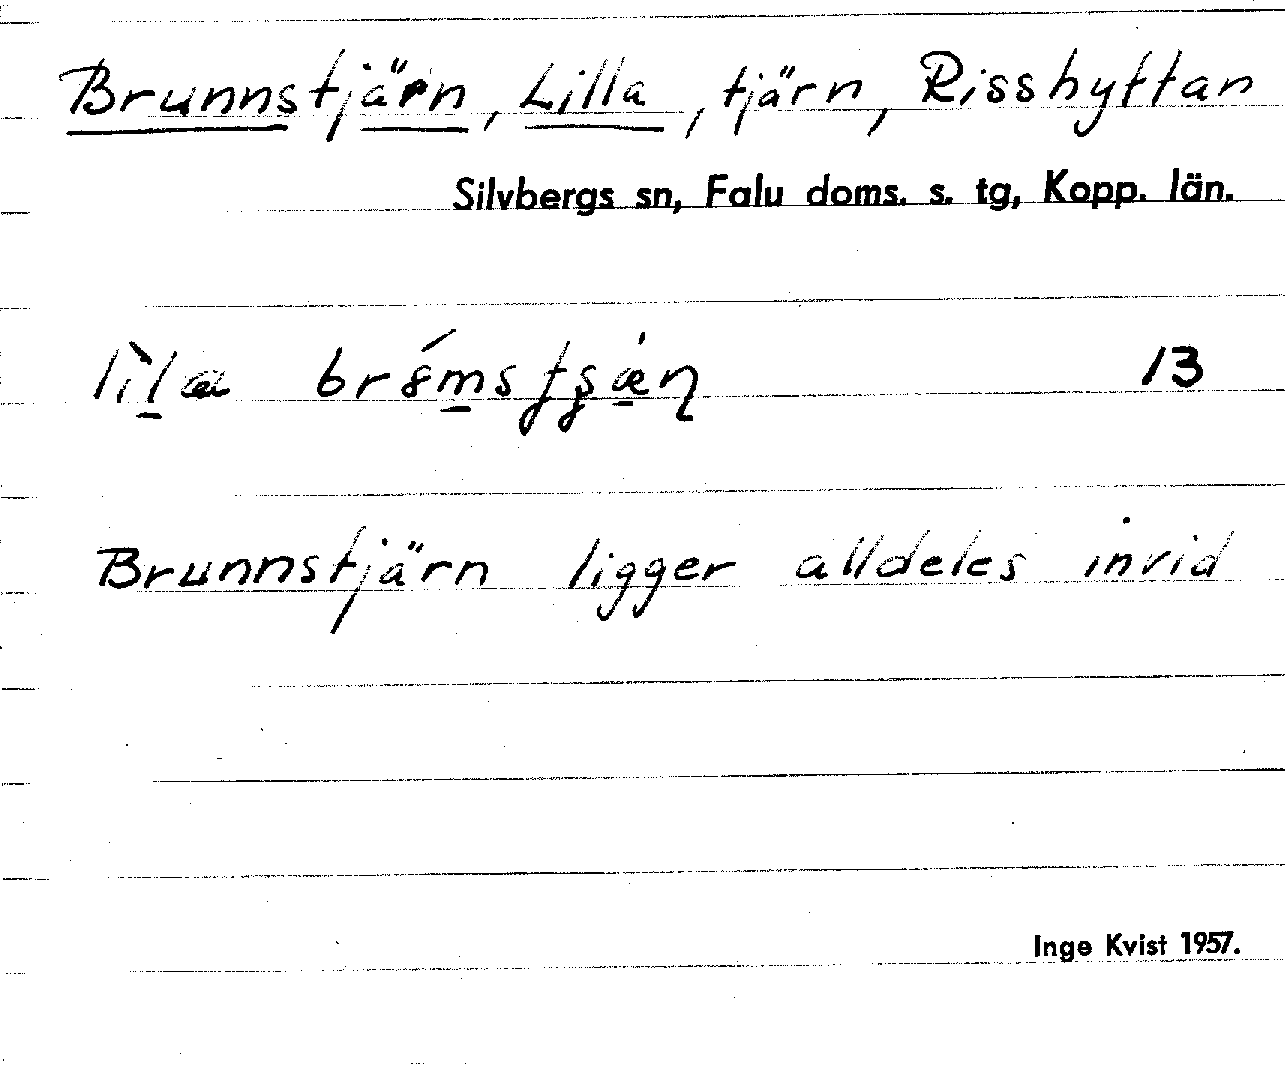 Brunnstjärn, Lilla, tjärn, Risshyttan
Silvbergs sn, Falu doms. s. tg, Kopp. län.
13
Brunnstjärn ligger alldeles invid
Inge Kvist 1957.